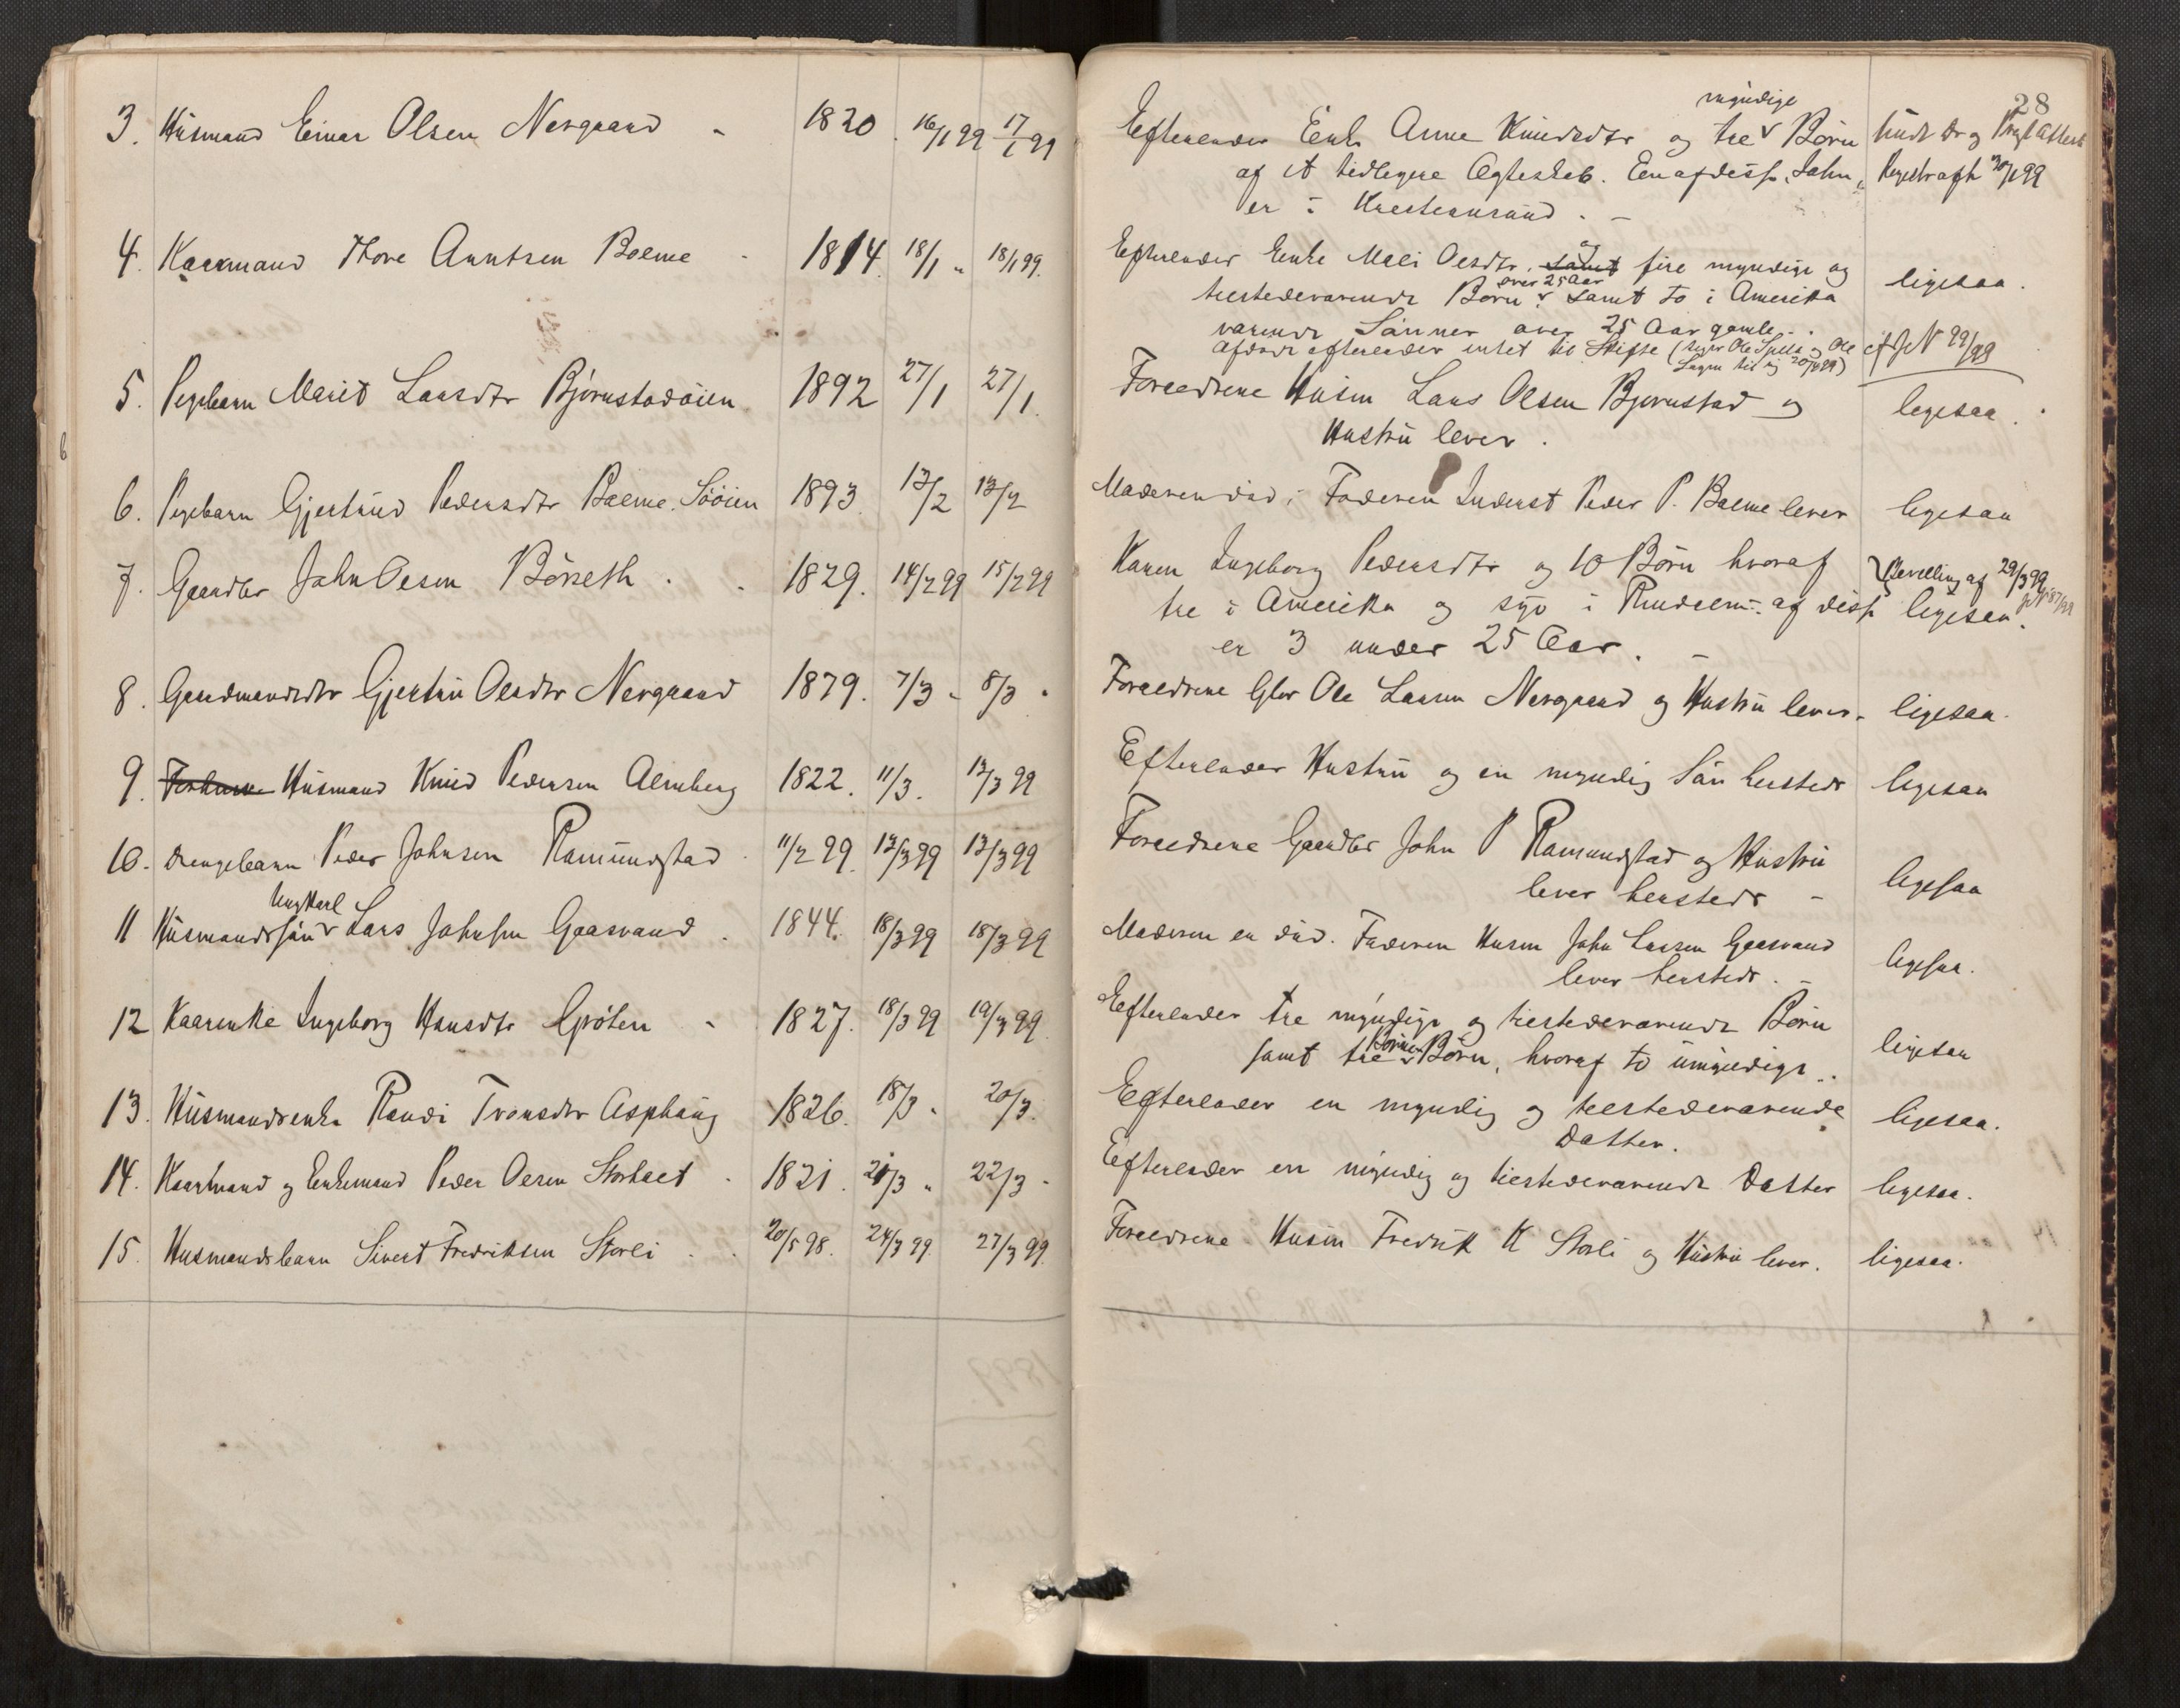 28
3. Husmand Einar Olsen Nergaard - 1820. 16/1 99 17/1 99
Efterlader Enke Anne Knudsdtr og tre myndige Børn
af et tidligere Ægteskab. En af disse, John,
er i Kristiansund. -
Regstrafh 30/1 99
4. Kaarmand Tore Arntsen Bolme - 1814. 18/1 " 18/1 99.
Efterlader Enke Mali Olsdtr. samt og fire myndige og
tilstedeværende Børn over 25 Aar samt to i Amerika
værende Sønner over 25 Aar gamle..
Afdøde efterlader intet til Skifte
ligesaa.
5. Pigebarn Marit Larsdtr Bjørnstadøien 1892 27/1 27/1.
Forældrene Husm Lars Olsen Bjørnstad og
Hustru lever.
ligesaa.
6. Pigebarn Gjertrud Pedersdtr Bolme. Søøien 1893. 12/2 13/2
Moderen død; Faderen Inderst Peder P. Bolme lever
ligesaa
7. Gaardbr John Olsen Børseth. - 1829. 14/2 99 15/2 99
Karen Ingeborg Pedersdtr og 10 Børn hvoraf
tre i Amerika og syv i Rindalen: af disse
er 3 under 25 Aar. -
Bevilling af 29/3 99
JN 87/99
ligesaa.
8. Gaardmandsdtr Gjertru Olsdtr Nergaard 1879. 7/3 - 8/3 -
Forældrene Gbr Ole Larsen Nergaard og Hustru lever.
ligesaa.
9. Husmand Knud Pedersen Almberg 1822. 11/3. 12/3 99
Efterlader Hustru og en myndig Søn hersteds
ligesaa
10. Drengebarn Peder Johnsen Ramundstad. 11/2 99. 12/3 99 13/3 99
Forældrene Gaardbr John P Ramundstad og Hustru
lever hersteds -
ligesaa
11 Husmandssøn Ungkarl Lars Johnsen Gaasvand. 1844. 18/3 99 18/3 99
Moderen er død. Faderen Husm John Larsen Gaasvand
lever hersteds. -
ligesaa.
12 Kaarenke Ingeborg Hansdtr Grøten - 1827. 18/3 99 19/3 99
Efterlader tre myndige og tilstedeværende Børn
samt tre Børn, hvoraf to umyndige..
ligesaa
13. Husmandsenke Randi Tronsdtr Asphaug 1826. 18/3 " 20/3.
Efterlader en myndig og tilstedeværende
Datter.
ligesaa.
14. Kaarmand og Enkemand Peder Olsen Storholt - 1821. 21/3 " 22/3 -
Efterlader en myndig og tilstedeværende Datter
ligesaa.
15. Husmandsbarn Sivert Fredriksen Storli. 20/5 98. 24/3 99. 27/3 99.
Forældrene Husm Fredrik K Storli og Hustru lever.
ligesaa.